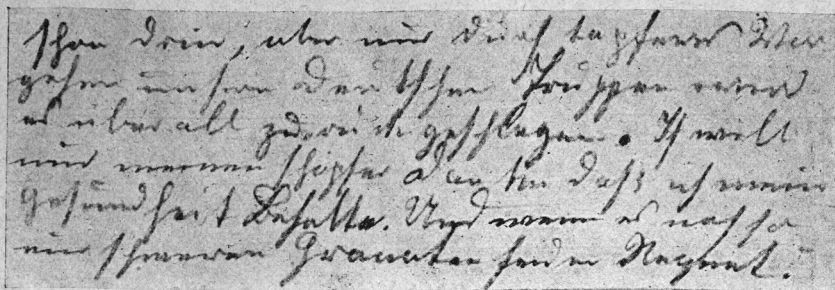 schon drin, aber nur durch tapferes Vor
gehen unsere Deutschen Truppen wird
es überall zurückgeschlagen. Ich will
nur meinen schöpfer Danken daß ich meine
Gesundheit Behalte. Und wenn es noch so
schweren Granaten Regnet.